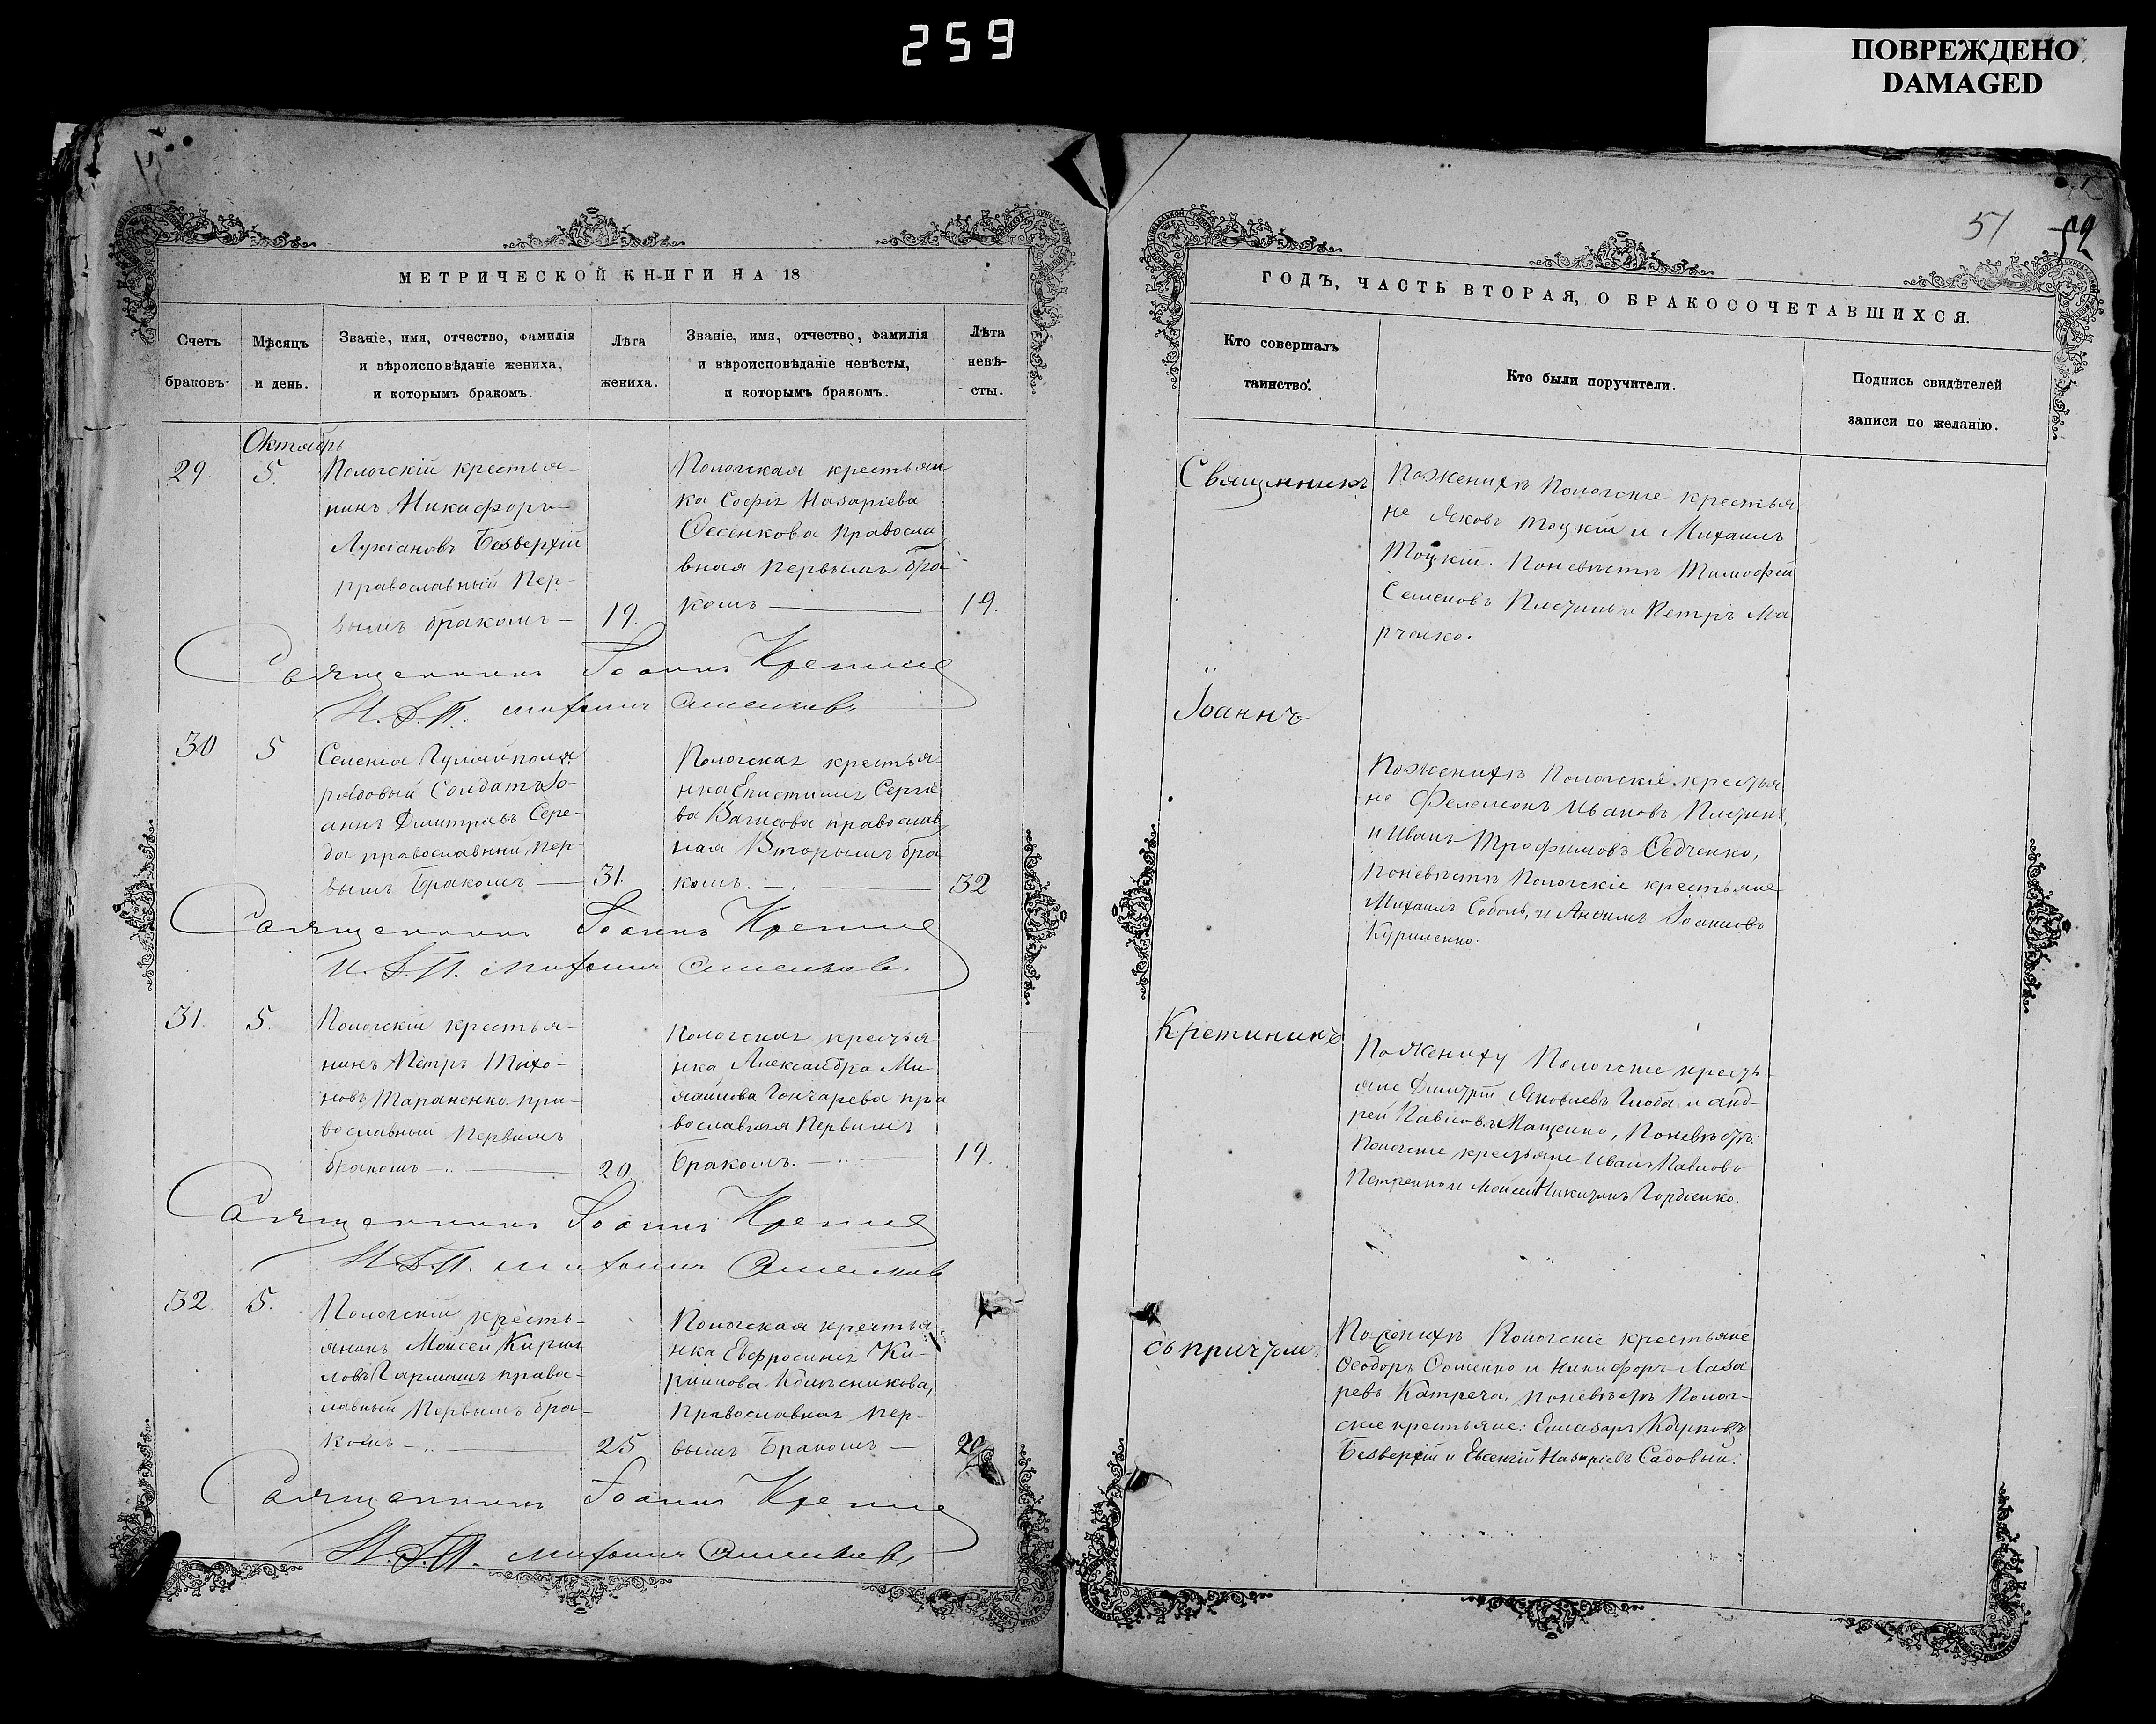 259
ПОВРЕЖДЕНО
DAMAGED
МЕТРИЧЕСКОЙ КНИГИ НА 18
Счетъ браковъ.
Мѣсяцъ и день.
Званіе, имя, отчество, фамилія
и вѣроисповѣданіе жениха,
и которымъ бракомъ.
Лѣта жениха.
Званіе, имя, отчество, фамилія
и вѣроисповѣданіе невѣсты,
и которымъ бракомъ.
Лѣта невѣ-
сты.
Октябрь
29.
5.
Пологскій крестья-
нинъ Никифоръ
Лукіановъ Безверхій
православный Пер-
вымъ бракомъ
19.
Пологская крестьян
ка Софія Назаріева
Фесенкова правосла
вная первымъ бра-
комъ
19.
Священникъ Іоаннъ
И. Д. П. Михаилъ
30
5
Селенія Гуляйполя
рядовый Солдатъ Іо-
аннъ Димитріевъ Сере-
да православный пер-
вымъ Бракомъ
31.
Пологская крестья-
нка Епистимія Сергіе
ва православ
ная Вторымъ бра
комъ.
32
Священникъ Іоаннъ
И. Д. П. Михаилъ
31.
5.
Пологскій крестья-
нинъ Петръ Тихо-
новъ Тараненко пра-
вославный Первымъ
бракомъ
20.
Пологская крестья-
нка Александра Ми-
хайлова Гончарева пра
вославная Первымъ
Бракомъ.
19.
Священникъ Іоаннъ
И. Д. П. Михаилъ
32.
5.
Пологскій кресть-
янинъ Моисей Кирил
ловъ Гармашъ правос-
лавный Первымъ бра-
комъ
25
Пологская крестья-
нка Евфросинія Ки-
риллова Колесникова,
Православная пер-
вымъ Бракомъ
20
Священникъ Іоаннъ
И. Д. П. Михаилъ
51
52
ГОДЪ, ЧАСТЬ ВТОРАЯ, О БРАКОСОЧЕТАВШИХСЯ.
Кто совершалъ
таинство.
Кто были поручители.
Подпись свидѣтелей
записи по желанію.
Священникъ
Іоаннъ
Кретининъ
съ причтомъ
Поженихѣ Пологскіе крестья
не Яковъ Тоцкій и Михаилъ
Тоцкій. Поневѣстѣ Тимофей
Семеновъ и Петръ Ма
рченко.
Поженихѣ Пологскіе крестья
не Филимонъ Ивановъ
и Иванъ Трофимовъ Федченко,
поневѣстѣ Пологскіе крестьяне
Михаилъ Соболь, и Іоанновъ
Куриленко.
По Жениху Пологскіе кресть-
яне Димитрій Яковлевъ Глоба и Анд-
рей Павловъ Мащенко, Поневѣстѣ:
Пологскіе крестьяне Иванъ Павловъ
Петренко и Моисей Никитинъ Гордіенко.
Поженихѣ Пологскіе крестьяне
Феодоръ Фоменко и Никифоръ Лаза
ревъ Поневѣстѣ Полог-
скіе крестьяне:
Безверхій и Евсевій Назаріевъ Садовый.